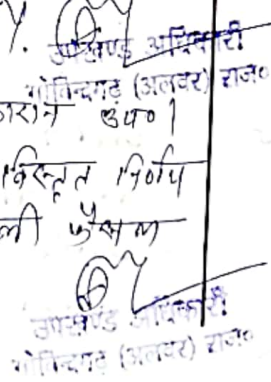 उपखण्ड अधिकारी
गोविन्दगढ़ (अलवर) राज०
उप० ।
विस्तृत निर्णय
ली फैसल
उपखण्ड अधिकारी
गोविन्दगढ़ (अलवर) राज०